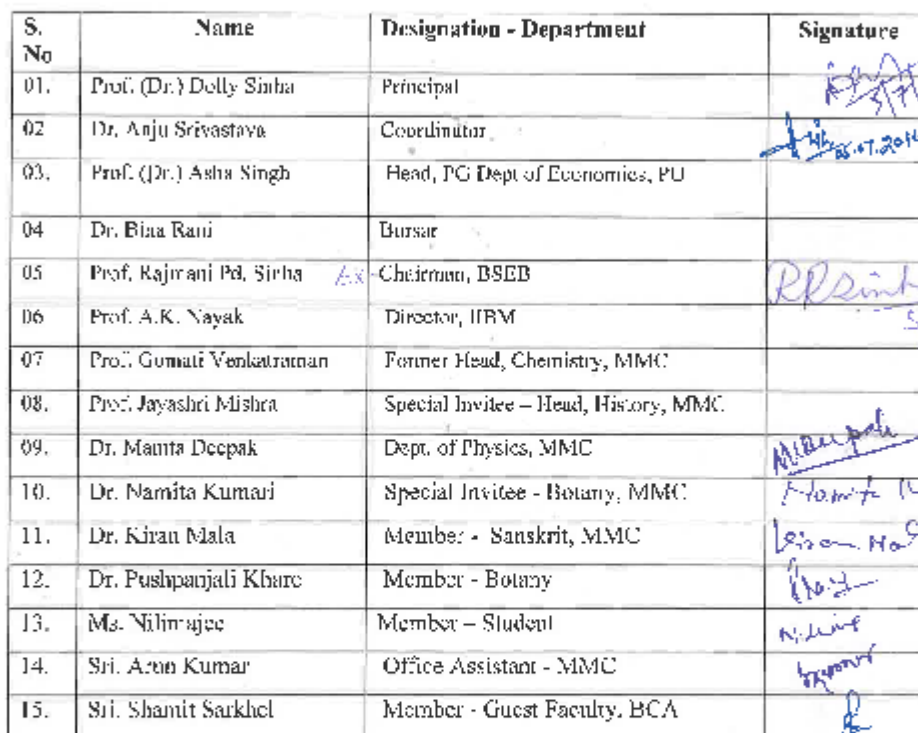 S. No Name Designation - Department Signature
01. Prof. (Dr.) Dolly Sinha Principal
02 Dr. Anju Srivastava Coordinator 05.07.2016
03. Prof. (Dr.) Asha Singh Head, PG Dept of Economics, PU
04 Dr. Bina Rani Bursar
05 Prof. Rajmani Pd. Sinha Ex- Chairman, BSEB RRSinh
06 Prof. A.K. Nayak Director, IIBM
07 Prof. Gomati Venkatraman Former Head, Chemistry, MMC
08. Prof. Jayashri Mishra Special Invitee – Head, History, MMC
09. Dr. Mamta Deepak Dept. of Physics, MMC
10. Dr. Namita Kumari Special Invitee - Botany, MMC Namita
11. Dr. Kiran Mala Member - Sanskrit, MMC Kiran Mal
12. Dr. Pushpanjali Khare Member - Botany
13. Ms. Nilimajee Member – Student
14. Sri. Arun Kumar Office Assistant - MMC
15. Sri. Shamit Sarkhel Member - Guest Faculty, BCA